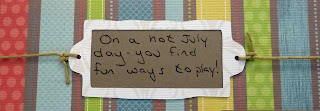 On a hot July
day-you find
fun ways to play!